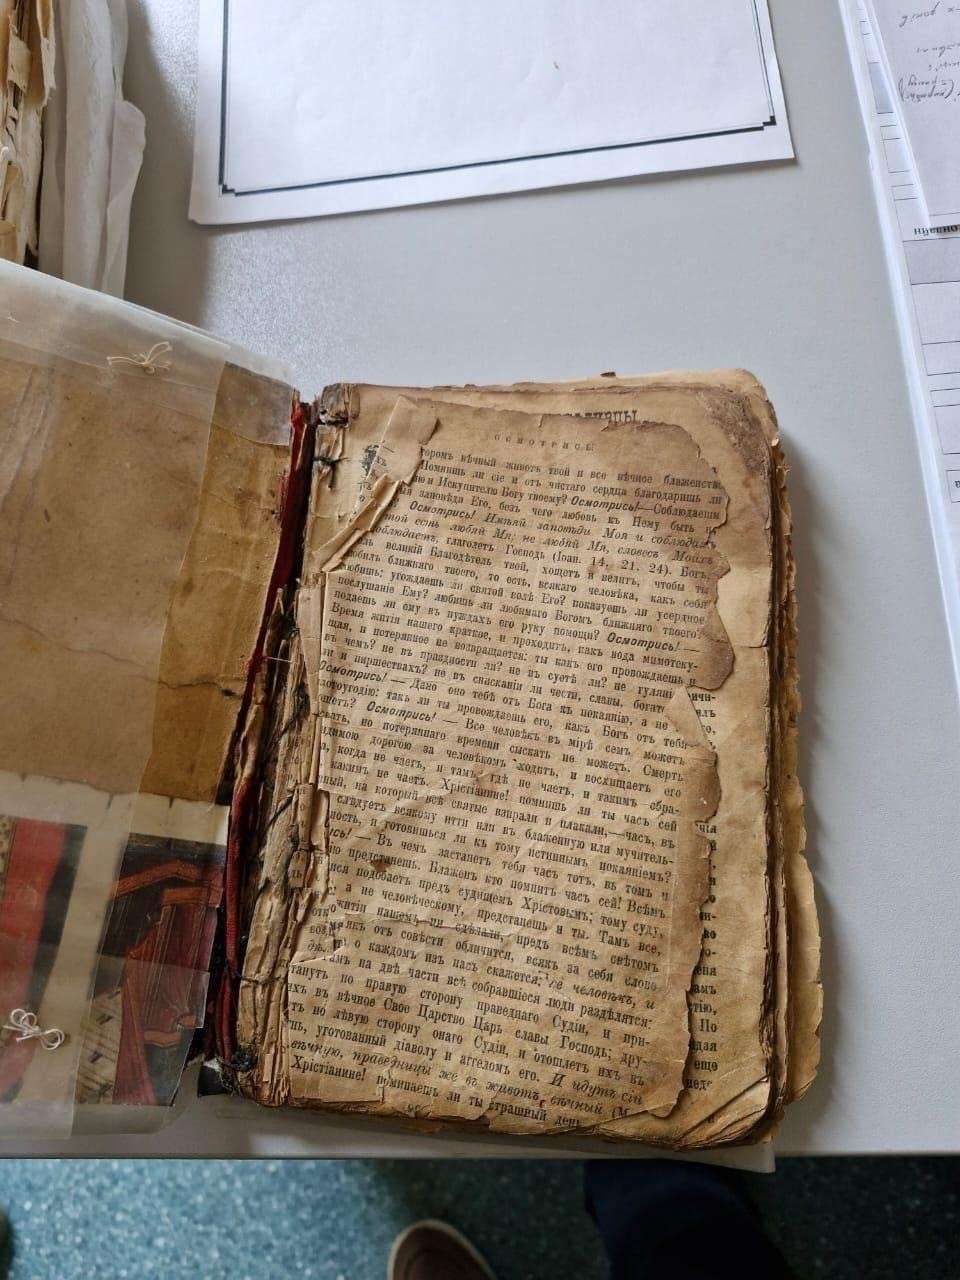 ОСМОТРИСЬ
вѣчный животъ твой и все вѣчное блаженств
Помнишь ли сіе и отъ чистаго сердца благодаришь ли
и Искупителю Богу твоему? Осмотрись!—Соблюдаешь
заповѣди Его, безъ чего любовь къ Нему быть н
Осмотрись! Имѣяй заповѣди Моя и соблюда
той есть любяй Мя; не любяй Мя, словесъ Моихъ
облюдаетъ, глаголетъ Господь (Іоан. 14, 21. 24). Богъ,
великій Благодѣтель твой, хощетъ и велитъ, чтобы ты
любилъ ближняго твоего, то есть, всякаго человѣка, какъ себя
любишь; угождаешь ли святой волѣ Его? показуешь ли усердное
послушаніе Ему? любишь ли любимаго Богомъ ближняго твоего?
подаешь ли ему въ нуждахъ его руку помощи? Осмотрись! —
Время житія нашего краткое, и проходитъ, какъ вода мимотеку-
щая, и потерянное не возвращается: ты какъ его провождаешь и
въ чемъ? не въ праздности ли? не въ суетѣ ли? не гуляні
и пиршествахъ? не въ снисканіи ли чести, славы, богат
Осмотрись! — Дано оно тебѣ отъ Бога къ покаянію, а не
угодію: такъ ли ты провождаешь его, какъ Богъ отъ тебя
Осмотрись! — Все человѣкъ въ мірѣ семъ можетъ
но потеряннаго времени сыскать не можетъ. Смерть
дорогою за человѣкомъ ходитъ, и восхищаетъ его
когда не чаетъ, и тамъ, гдѣ не чаетъ, и такимъ обра-
какимъ не чаетъ. Хрістіанине! помнишь ли ты часъ сей
на который всѣ святые взирали и плакали,—часъ, въ
слѣдуетъ всякому итти или въ блаженную или мучитель-
и готовишься ли къ тому истиннымъ покаяніемъ?
— Въ чемъ застанетъ тебя часъ тотъ, въ томъ и
предстанешь. Блаженъ кто помнитъ часъ сей! Всѣмъ
подобаетъ предъ судищемъ Хрістовымъ; тому суду,
а не человѣческому, предстанешь и ты. Тамъ все,
житіи нашемъ ни сдѣлали, предъ всѣмъ свѣтомъ
отъ совѣсти обличится, всякъ за себя слово
о каждомъ изъ насъ скажется: се человѣкъ, и
на двѣ части всѣ собравшіеся люди раздѣлятся:
по правую сторону праведнаго Судіи, и при-
ихъ въ вѣчное Свое Царство Царь славы Господь; дру-
по лѣвую сторону онаго Судіи, и отошлетъ ихъ въ
уготованный діаволу и аггеломъ его. И идутъ сіи
вѣчную, праведницы же въ животъ вѣчный
Хрістіанине! поминаешь ли ты страшный день